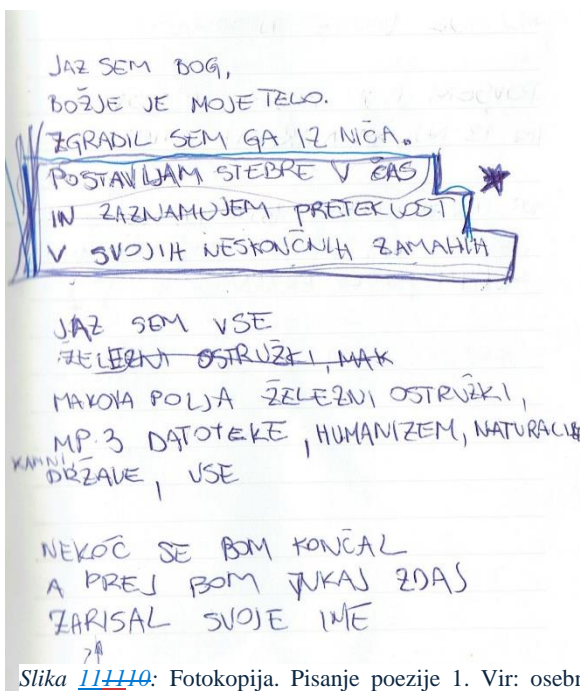 JAZ SEM BOG,
BOŽJE JE MOJE TELO.
ZGRADIL SEM GA IZ NIČA.
POSTAVLJAM STEBRE V ČAS
IN ZAZNAMUJEM PRETEKLOST
V SVOJIH NESKONČNIH ZAMAHIH
JAZ SEM VSE
ŽELEZNI OSTRUŽKI, MAK
MAKOVA POLJA ŽELEZNI OSTRUŽKI,
MP3 DATOTEKE, HUMANIZEM,
KAMNI
DRŽAVE, VSE
NEKOČ SE BOM KONČAL
A PREJ BOM TUKAJ ZDAJ
ZARISAL SVOJE IME
Slika 111110: Fotokopija. Pisanje poezije 1. Vir: osebn